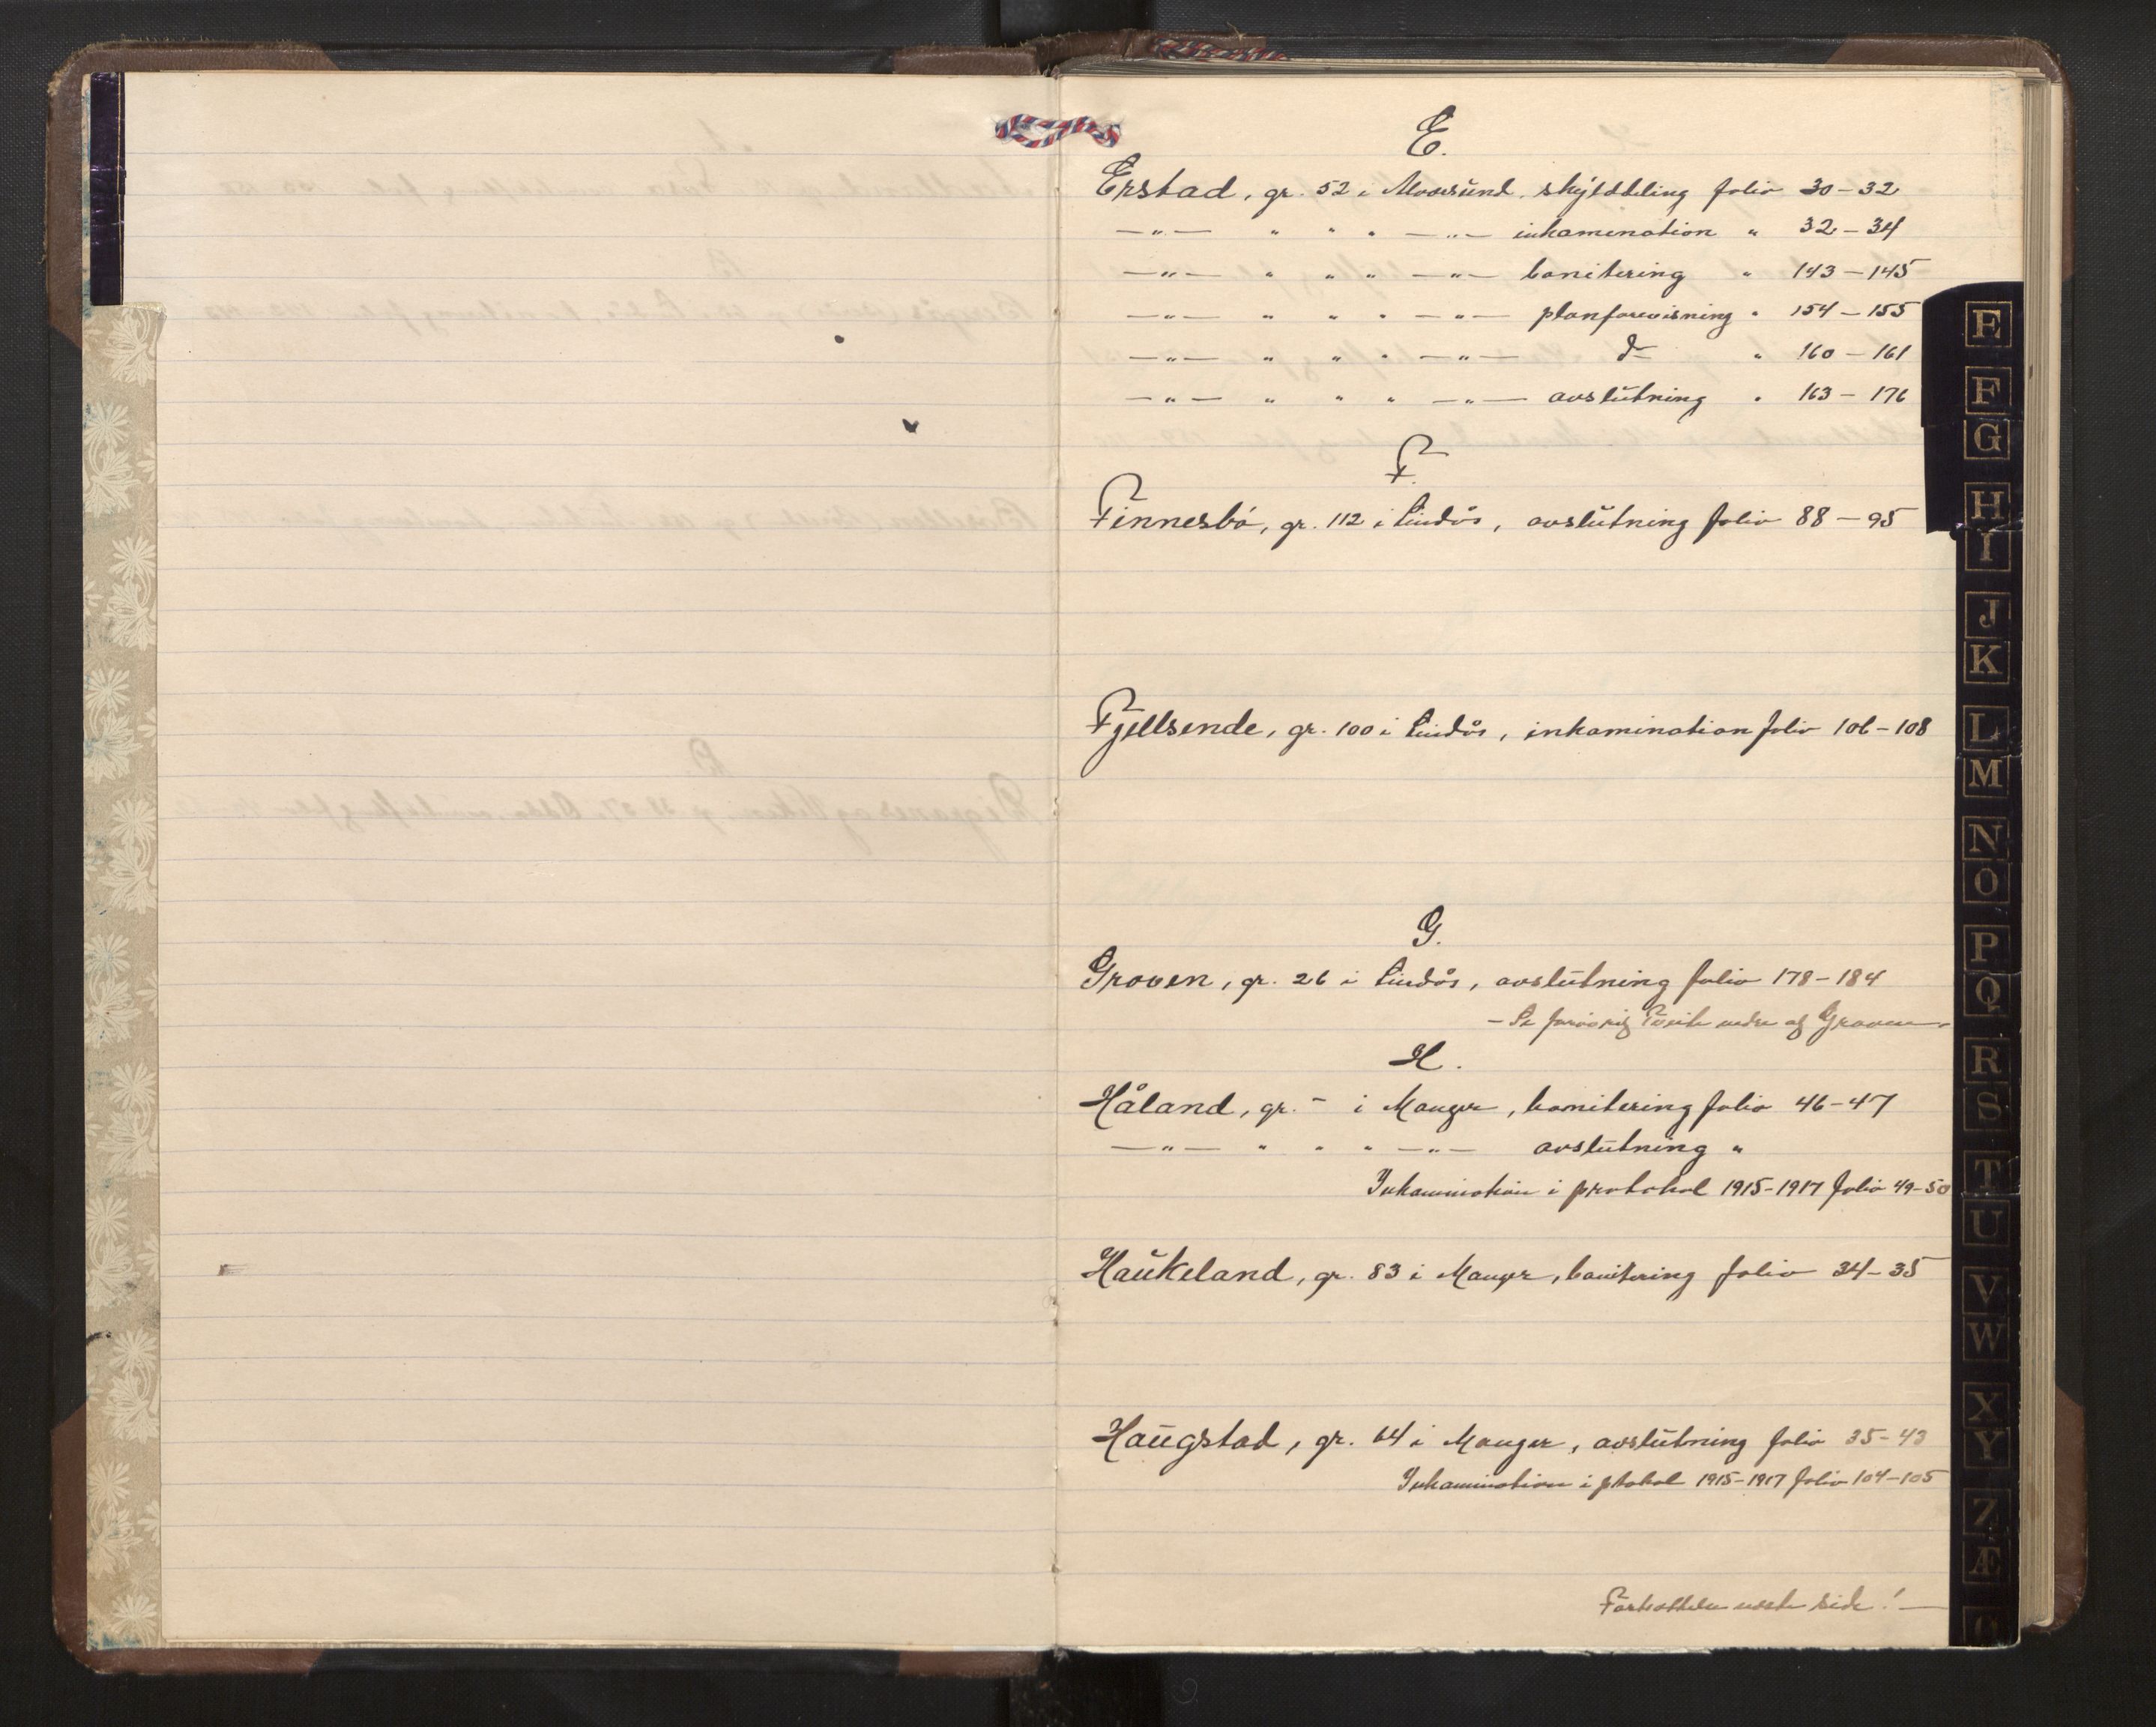 E.
Erstad, gr. 52 i Mo­sund, skylddeling folio 30-32
—"— " " " —"— inkamination " 32-34
—"— " " " —"— bonitering " 143-145
—"— " " " —"— planforevisning " 154-155
—"— " " " —"— do " 160-161
—"— " " " —"— avslutning " 163-176
F.
Finnesbö, gr. 112 i Lindås, avslutning folio 88-95
Fjellsende, gr. 100 i Lindås, inkamination folio 106-108
G.
Groven, gr. 26 i Lindås, avslutning folio 178-184
- Se forövrig Tveit nedre og Groven -
H.
Håland, gr. - i Manger, bonitering folio 46-47
—"— " " " —"— avslutning "
Inkamination i protokol 1915-1917 folio 49-50
Haukeland, gr. 83 i Manger, bonitering folio 34-35
Haugstad, gr. 64 i Manger, avslutning folio 35-43
Inkamination i ptokol 1915-1917 folio 104-105
Fortsettelse neste side! —
E
F
G
H
I
J
K
L
M
N
O
P
Q
R
S
T
U
V
W
X
Y
Z
Æ